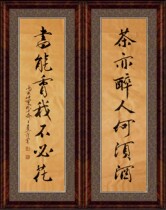 茶亦醉人何須酒
書能香我不必花